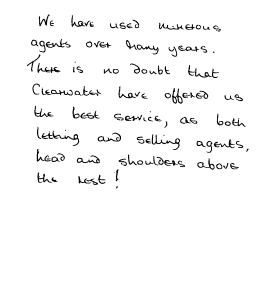 We have used numerous
agents over many years.
There is no doubt that
Clearwater have offered us
the best service, as both
letting and selling agents,
head and shoulders above
the rest!